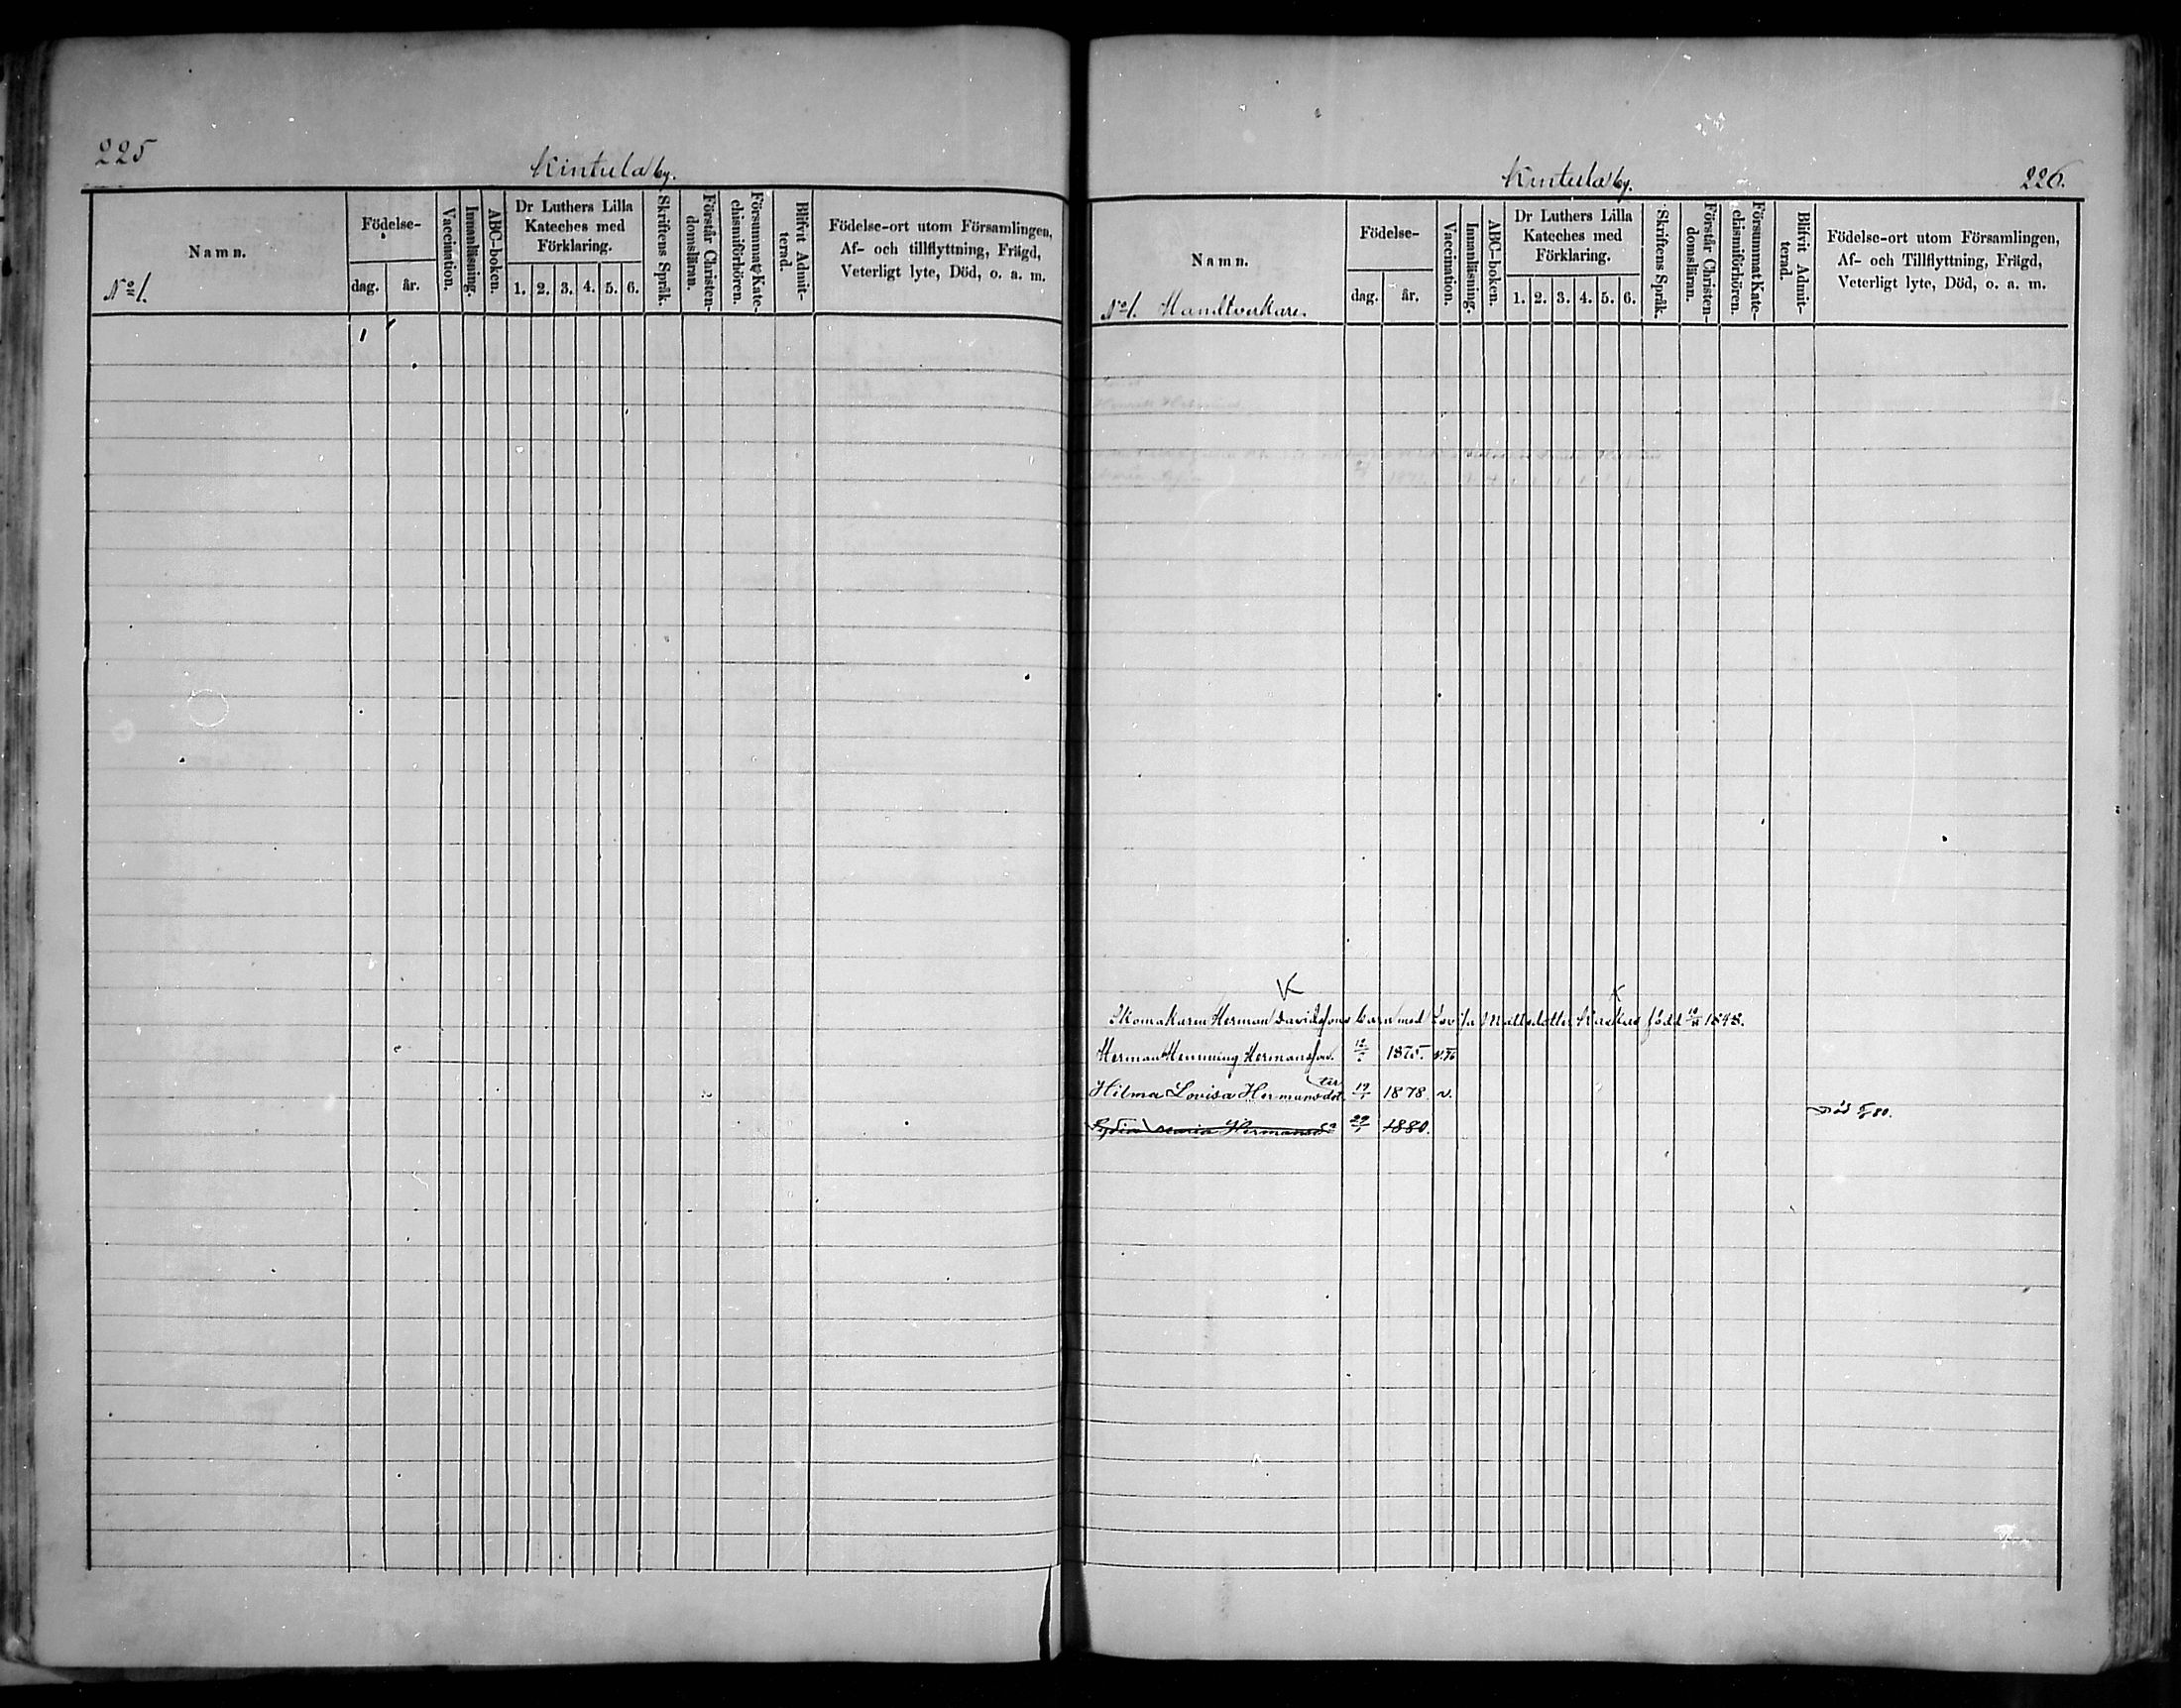 225
Kintula by.
Namn.
No 1.
Födelse-
dag.
år.
Vaccination.
Innanläsning.
ABC-boken.
Dr Luthers Lilla
Kateches med
Förklaring.
1. 2. 3. 4. 5. 6.
Skriftens Språk.
Förstår Christen-
domsläran.
Försummat Kate-
chismiförhören.
Blifvit Admit-
terad.
Födelse-ort utom Församlingen,
Af- och tillflyttning, Frägd,
Veterligt lyte, Död, o. a. m.
Kintula by.
226.
Namn.
No 1. Handtverkare.
Födelse-
dag.
år.
Vaccination.
Innanläsning.
ABC-boken.
Dr Luthers Lilla
Kateches med
Förklaring.
1. 2. 3. 4. 5. 6.
Skriftens Språk.
Förstår Christen-
domsläran.
Försummat Kate-
chismiförhören.
Blifvit Admit-
terad.
Födelse-ort utom Församlingen,
Af- och Tillflyttning, Frägd,
Veterligt lyte, Död, o. a. m.
Skomakaren Herman Davidssons barn med Lovisa Mattsdotter född 1848.
Herman Hemming Hermansson. 1875.
Hilma Lovisa Hermansdotter 19 1878. v.
Lydia Maria Hermansd 1880. Död 80.